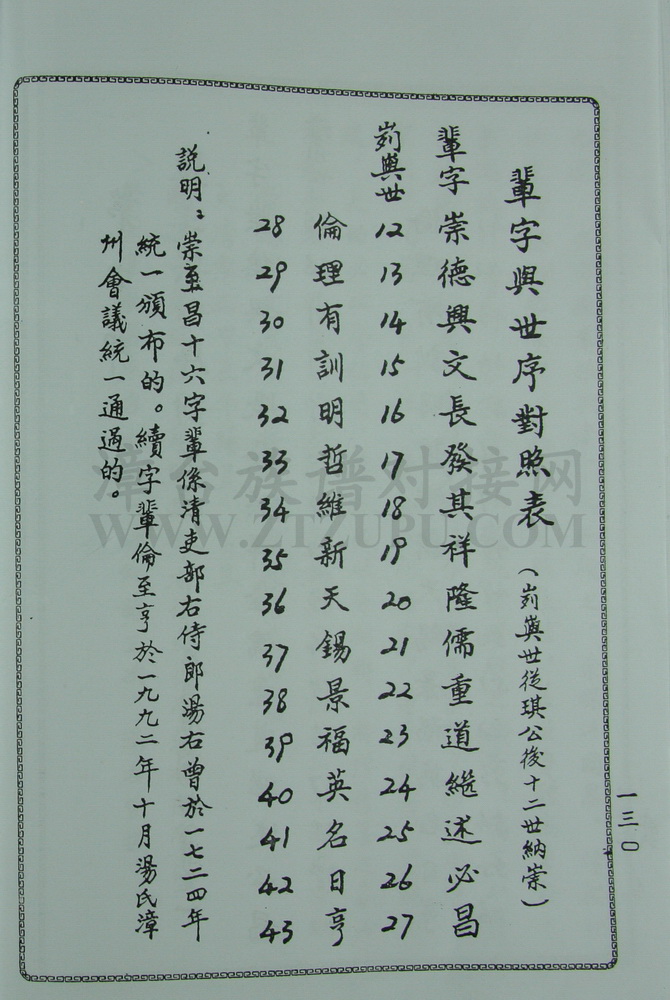 輩字與世序對照表（剡與世從琪公後十二世納崇）
輩字 崇德興文長發其祥隆儒重道繼述必昌
剡與世 12 13 14 15 16 17 18 19 20 21 22 23 24 25 26 27
倫理有訓明哲維新天錫景福英名日亨
28 29 30 31 32 33 34 35 36 37 38 39 40 41 42 43
説明：崇至昌十六字輩係清吏部右侍郎湯右曾於一七二四年
統一頒布的。續字輩倫至亨於一九九二年十月湯氏漳
州會議統一通過的。
一三〇
漳台族谱对接网
WWW.ZTZUPU.COM